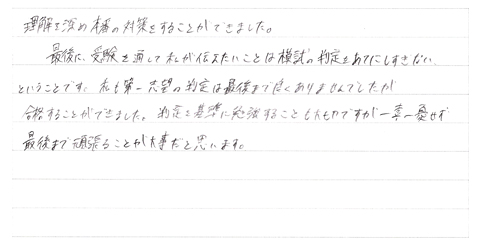 理解を深め本番の対策をすることができました。
最後に、受験を通して私が伝えたいことは模試の判定をあてにしすぎない
ということです。私も第一志望の判定は最後まで良くありませんでしたが
合格することができました。判定を基準に勉強することも大切ですが一喜一憂せず
最後まで頑張ることが大事だと思います。